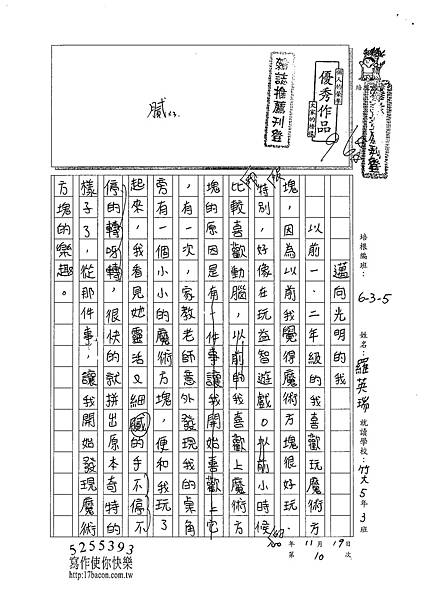 優秀作品
雜誌推薦刊登
膩
培根編班：6-3-5
姓名：羅英瑞
就讀學校：竹大5年3班
年11月19日
第10次
邁向光明的我
以前一、二年級的我喜歡玩魔術方
塊，因為以前我覺得魔術方塊很好玩、
特別，好像在玩益智遊戲。以前小時候
比較喜歡動腦，以前的我喜歡上魔術方
塊的原因是有一件事讓我開始喜歡上它
，有一次，家教老師意外發現我的桌角
旁有一個小小的魔術方塊，便和我玩了
起來，我看見她靈活又細膩的手不停不
停的轉呀轉，很快的就拼出原本奇特的
樣子了，從那件事，讓我開始發現魔術
方塊的樂趣。
5255393
寫作使你快樂
http://17bacon.com.tw